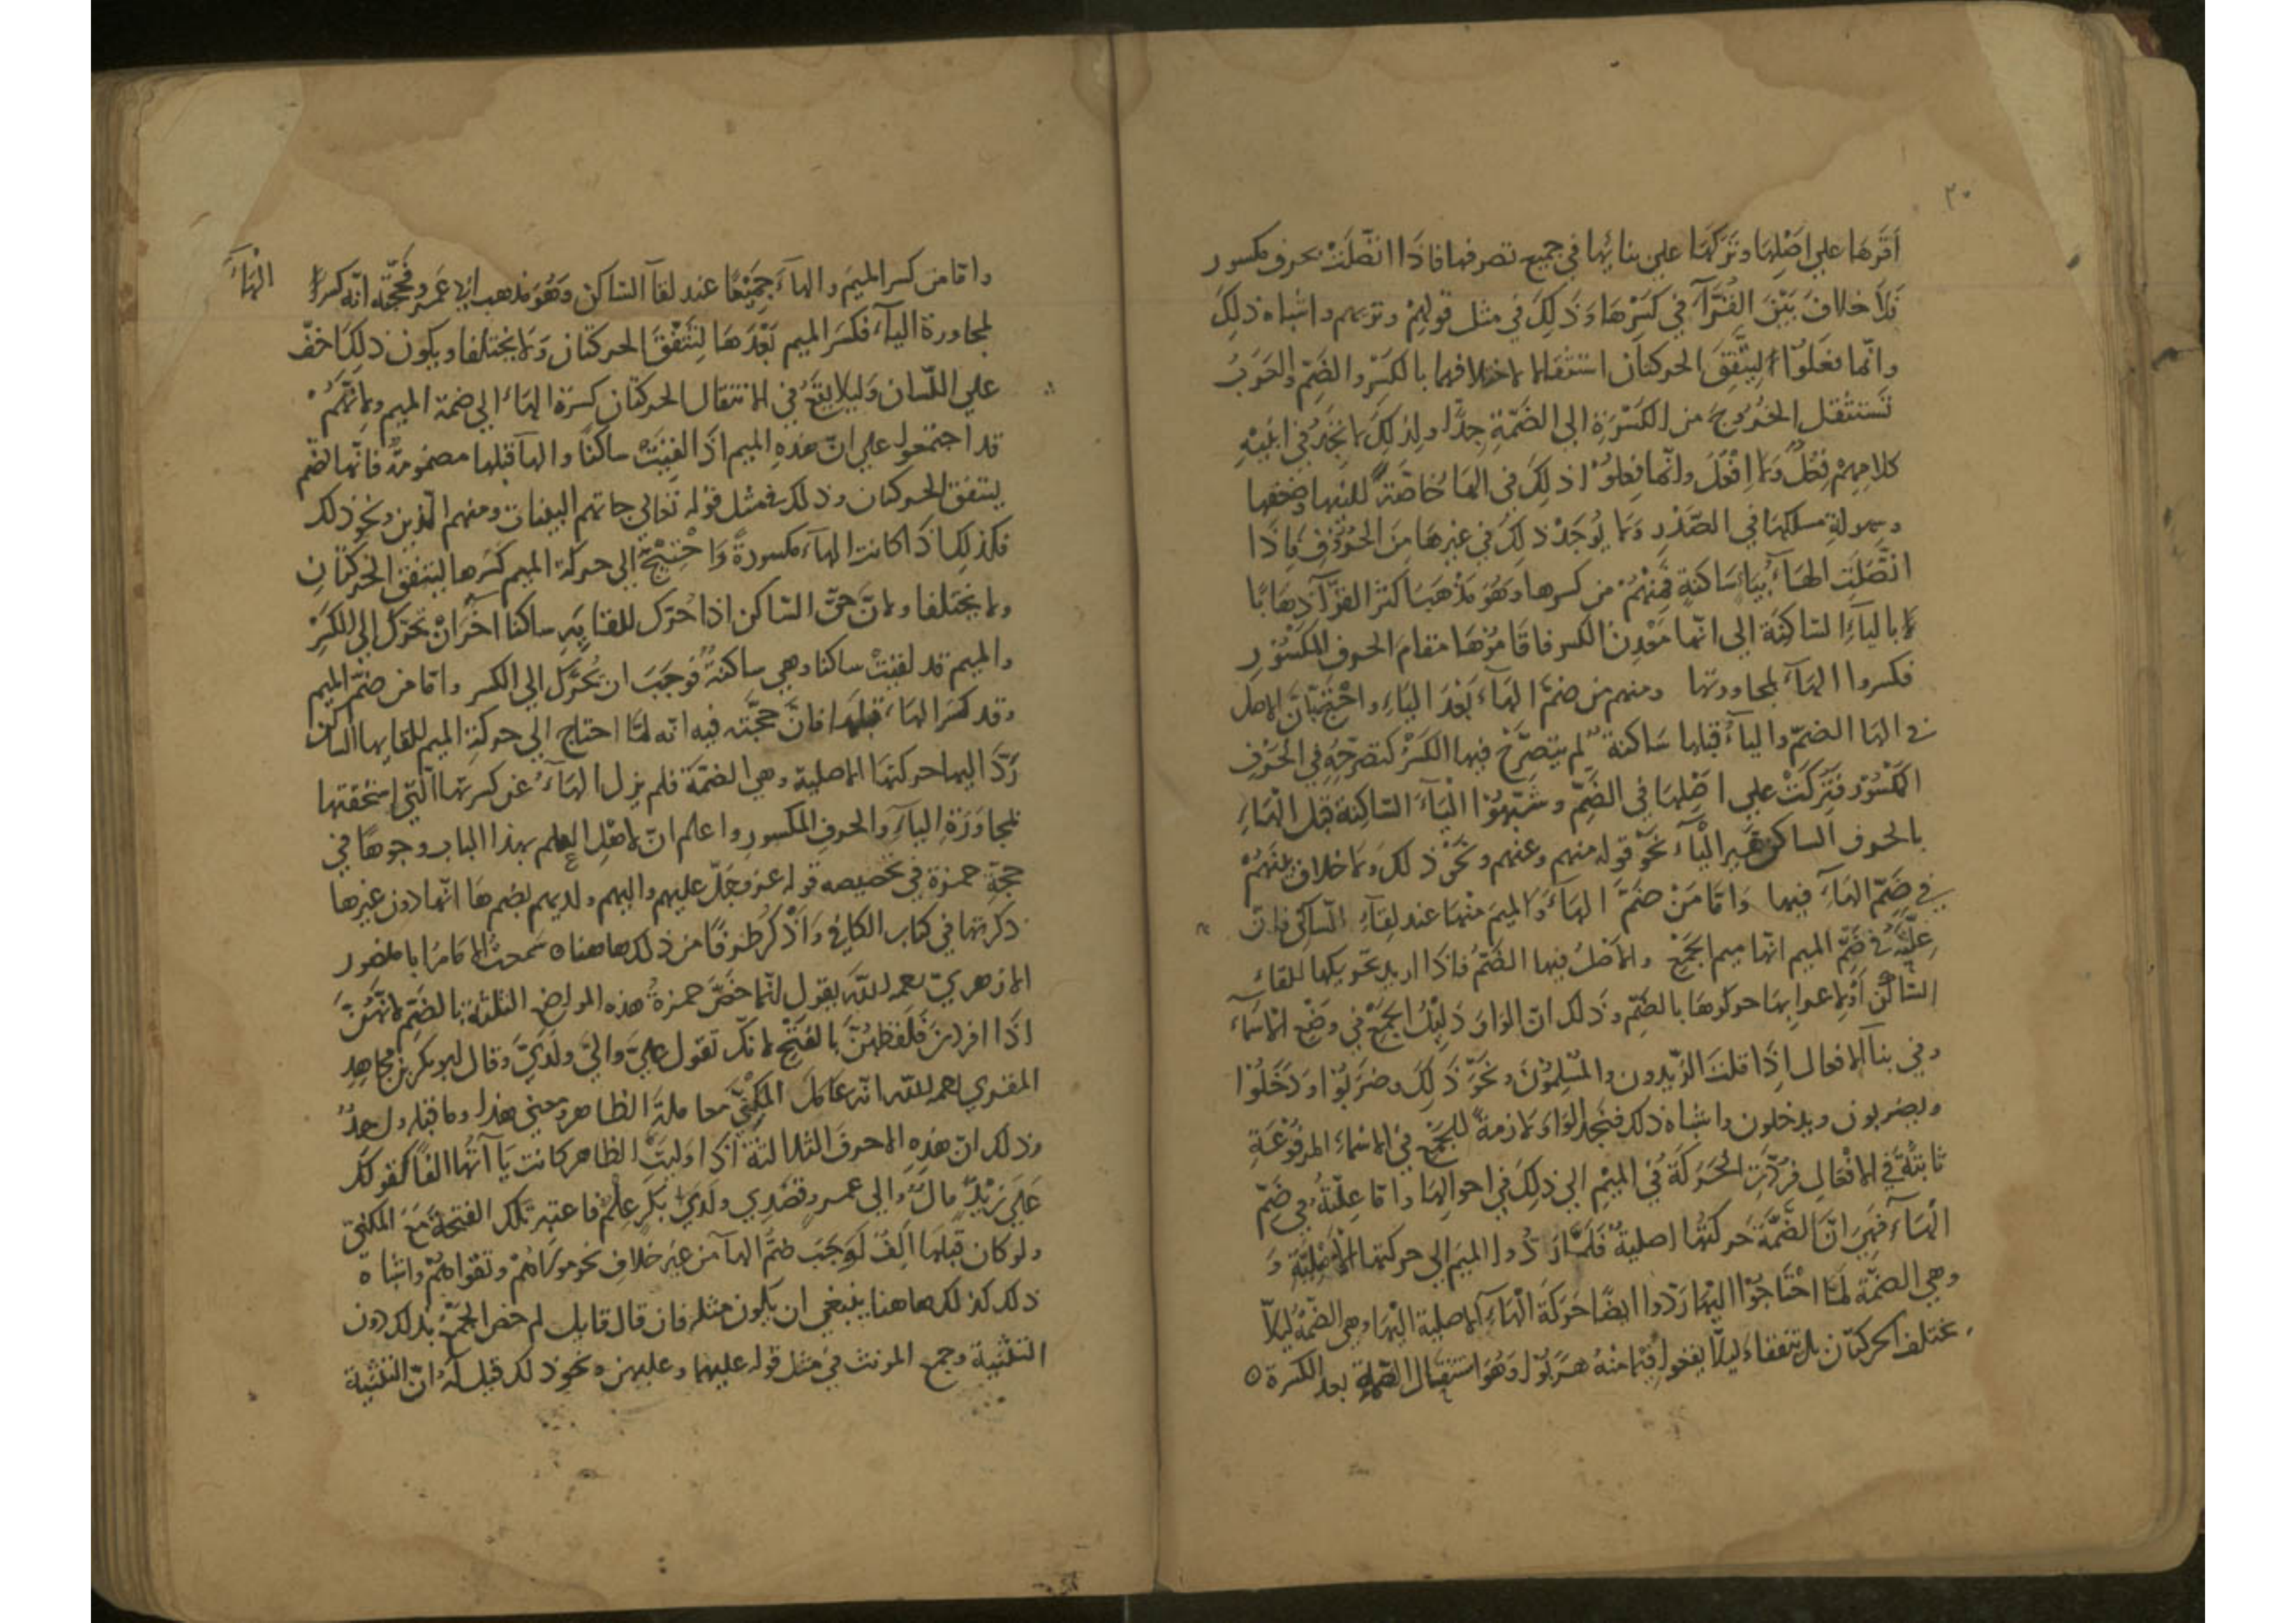 ٢٠
أقرها علي اصلها وتركها علي بنائها في جميع تصرفها فاذا اتصلت بحرف مكسور
فلا خلاف بين القرآء في كسرها وذلك في مثل قولهم وتربهم واشباه ذلك
وانما فعلوا ليتفق الحركتان استثقالا لاختلافهما بالكسر والضم والعرب
تستثقل الخروج من الكسرة الي الضمة جدا ولذلك لا نجد في ابنية
كلامهم فعل ولا افعل وانما فعلوا ذلك في الها خاصة للينها وضعفها
وسهولة مسلكها في الصدر ولا يوجد ذلك في غيرها من الحروف فاذا
اتصلت الهاء بياء ساكنة فمنهم من كسرها وهو مذهب اكثر القرآء ذهابا
بالياء الساكنة الي انها معدن الكسر فاقاموها مقام الحرف المكسور
فكسروا الهاء لمجاورتها ومنهم من ضم الهاء بعد الياء واحتج بان الاصل
في الها الضم والياء قبلها ساكنة لم يتصرح فيها الكسر كتصرحه في الحرف
المكسور فتركت علي اصلها في الضم وشبهوا الياء الساكنة قبل الهاء
بالحرف الساكن غير الياء نحو قوله منهم وعنهم ونحو ذلك ولا خلاف بينهم
في ضم الهاء فيها واما من ضم الهاء والميم منها عند لقاء الساكن فان
علته في ضم الميم انها ميم الجمع والاصل فيها الضم فاذا اريد تحريكها للقاء
الساكن بها حركوها بالضم وذلك ان الواو دليل الجمع في وضع الاسماء
وفي بنآ الافعال اذا قلت الزيدون والمسلمون ونحو ذلك وضربوا ودخلوا
ويضربون ويدخلون واشباه ذلك فتجد الواو لازمة للجمع في الاسماء المرفوعة
ثابتة في الافعال فردت الحركة في الميم الي ذلك في احوالها واما علته في ضم
الهآء فهي ان الضمة حركتها اصلية فلما ردوا الميم الي حركتها الاصلية و
وهي الضمة لما احتاجوا اليها ردوا ايضا حركة الهآء الاصلية اليها وهي الضمة ليلا
تختلف الحركتان بل تتفقا ليلا يقعوا فيما منه هربوا وهو استثقال الضمة بعد الكسرة
واما من كسر الميم والهآء جميعا عند لقآ الساكن وهو مذهب ابي عمرو فحجته انه كسر الهاء
لمجاورة الياء فكسر الميم بعدها لتتفق الحركتان ولا يختلفا ويكون ذلك اخف
علي اللسان وليلا يقع في الانتقال الحركتان كسرة الهاء الي ضمة الميم ولانهم
قد اجتمعوا علي ان هذه الميم اذا لقيت ساكنا والها قبلها مضمومة فانها تضم
ليتفق الحركتان وذلك في مثل قوله تعالي جاتهم البينات ومنهم الذين ونحو ذلك
فكذلك اذا كانت الهآء مكسورة واحتيج الي حركة الميم كسرها ليتفق الحركتان
ولا يختلفا ولان حق الساكن اذا حرك للقايه ساكنا آخر ان تحرك الي الكسر
والميم قد لقيت ساكنا وهي ساكنة فوجب ان تحرك الي الكسر واما من ضم الميم
وقد كسر الهاء قبلها فان حجته فيه انه لما احتاج الي حركة الميم للقايها الساكن
رد اليها حركتها الاصلية وهي الضمة فلم يزل الهآء عن كسرتها التي استحقتها
لمجاورة الياء والحرف المكسور واعلم ان لاهل العلم بهذا الباب وجوها في
حجة حمزة في تخصيصه قوله عز وجل عليهم واليهم ولديهم بضم ها اتها دون غيرها
ذكرتها في كتاب الكافي واذكر طرفا من ذلك هاهنا سمعت الامام ابا منصور
الازهري رحمه الله يقول انما خص حمزة هذه المواضع الثلثة بالضم لانهن
اذا افردن فلفظهن بالفتح لانك تقول علي والي ولدي وقال ابو بكر بن مجاهد
المقري رحمه الله انه عامل المكني معاملة الظاهر ومعني هذا وما قبله واحد
وذلك ان هذه الاحرف الثلاثة اذا وليت الظاهر كانت يا آتها الفا كقولك
علي زيد مال والي عمرو قصدي ولدي بكر علم فاعتبر تلك الفتحة مع المكني
ولو كان قبلها الف لوجب ضم الهآ من غير خلاف نحو مولاهم وتقواهم واشباه
ذلك كذلك هاهنا ينبغي ان يكون مثله فان قال قايل لم خص الجمع بذلك دون
التثنية وجمع المونث في مثل قوله عليهما وعليهن ونحو ذلك قيل له ان التثنية